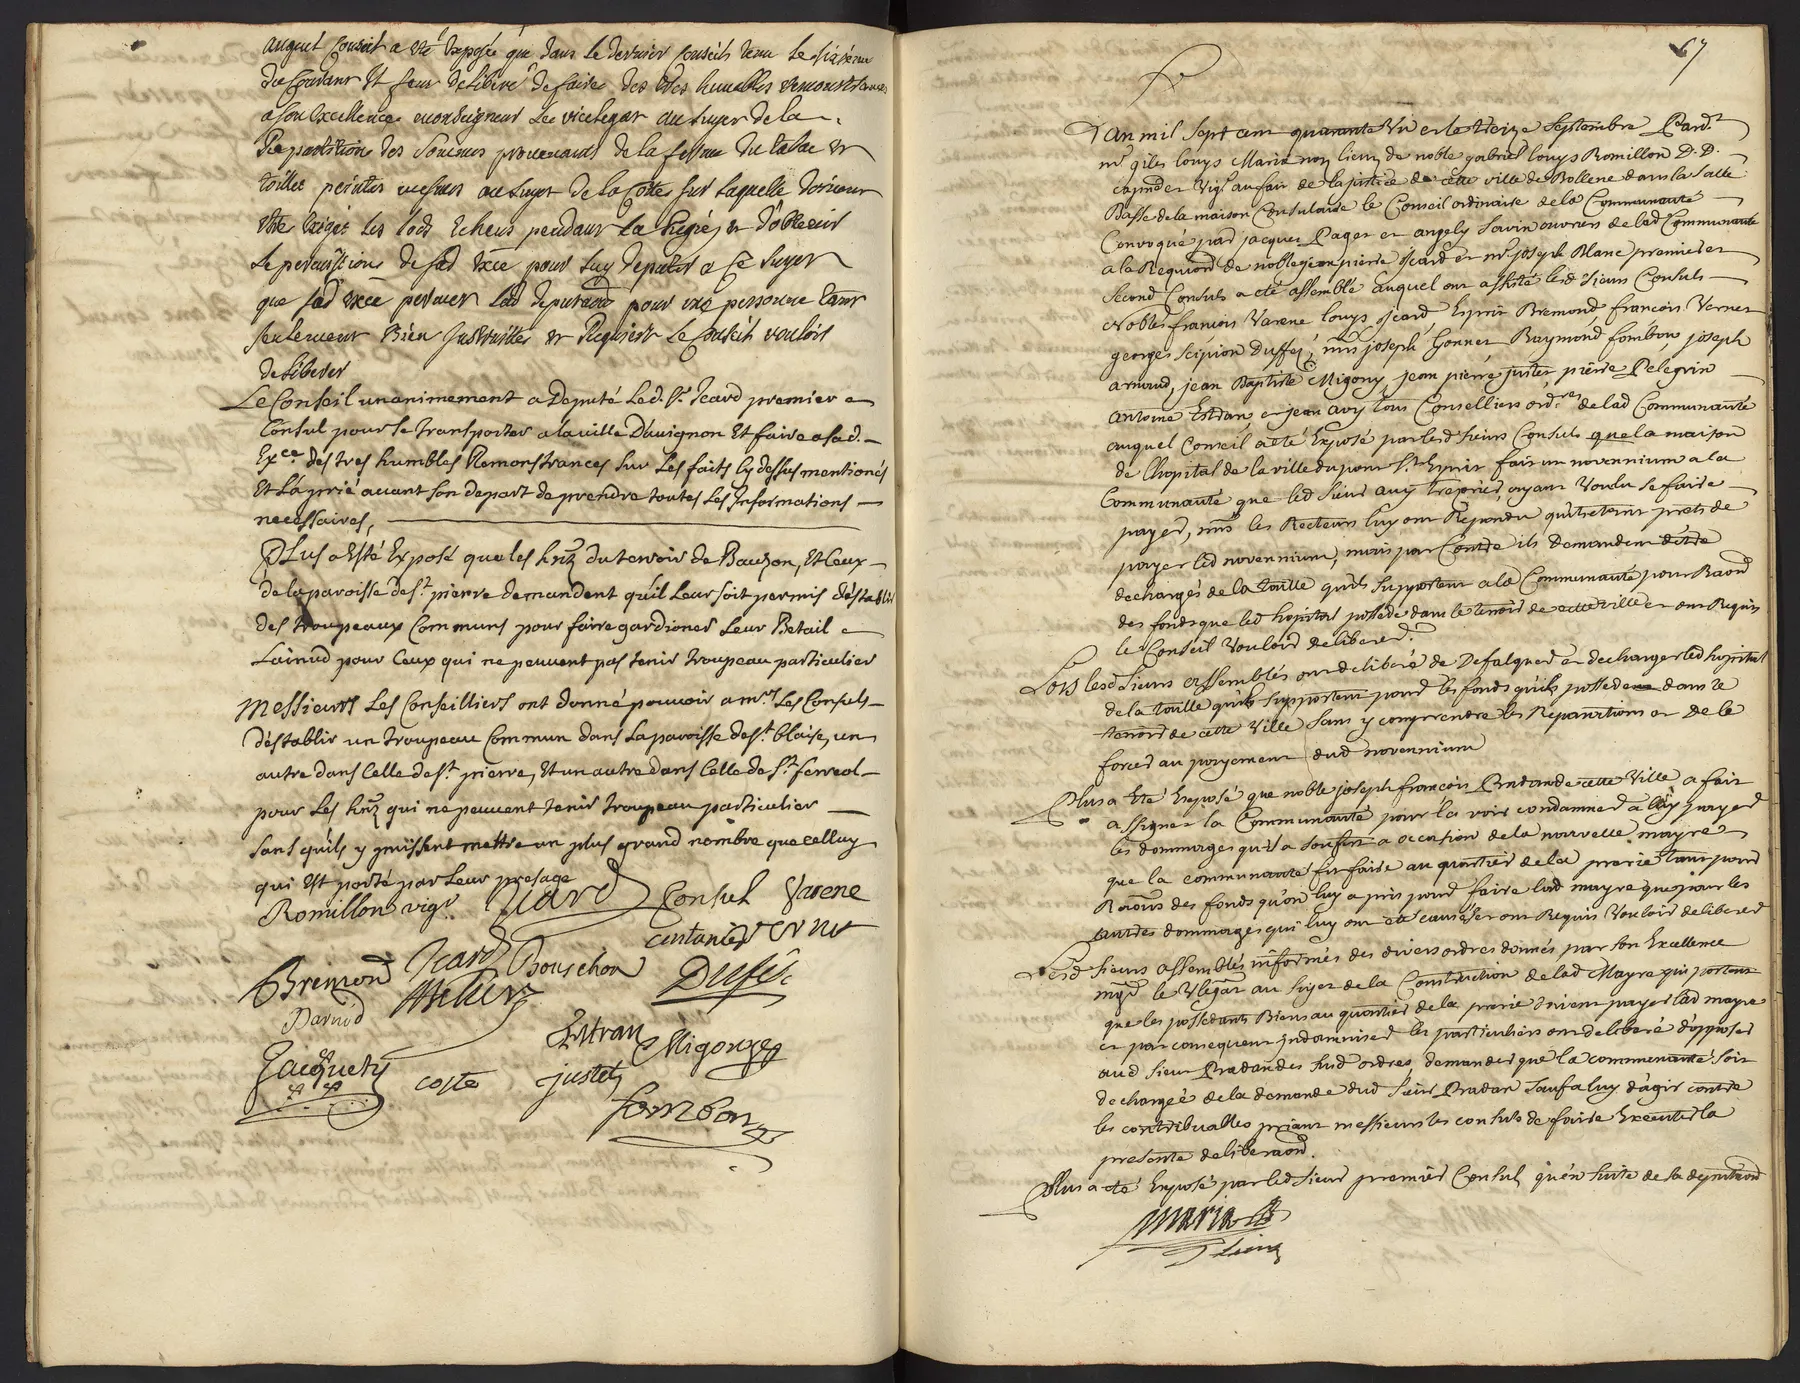 auquel Conseil a été Exposé que dans le dernier Conseils tenu le sixième
du Courant Il feut deliberé de faire des très humbles remonstrances
a son Excellence monseigneur Le vicelegat au sujet de la
Repartition des Sommes provenants de la ferme du tabac et
toilles peintes au sujet de la Cotte sur laquelle doivent
être exigés les lods Echeus pendant la Regie, et d'obtenir
La permission de sad Exce pour luy deputer a Ce sujet
que sad Exce permet lad deputaon pour une personne tant
seulement Bien Instruitte et Requierir Le Conseil vouloir
deliberer
Le Conseil unanimement a Deputé Led. Sr. Icard premier
Consul pour se transporter a la ville D'avignon Et faire a sad.
Exce. des tres humbles Remonstrances sur Les faits cy dessus mentionés
Et L'a prié avant son depart de prendre toutes Les Informations
necessaires,
Plus a Esté Exposé que les hnz du terroir de Bauzon, Et Ceux
de la paroisse de St. pierre demandent qu'il Leur soit permis d'establir
des troupeaux Communs pour faire gardioner Leur Betail
Lainud pour Ceux qui ne peuvent pas tenir troupeau particulier
Messieurs Les Conseilliers ont donné pouvoir a mrs. Les Consuls
d'éstablir un troupeau Commun dans La paroisse de St. blaise, un
autre dans Celle de St. pierre, Et un autre dans Celle de St. ferreol
pour Les hnz qui ne peuvent tenir troupeau particulier
sans qu'ils y puissent mettre un plus grand nombre que celluy
qui Est porté par Leur presage
Romillon vigr. Icard Consul Varene
Brémond Icard Bouschon
Dufés
Darnud
Estran Migonge
Jacquety coste justet
fombon
67
L'an mil sept cent quarante Un et le treize Septembre Pardt.
mr giles louys Marie non lieuz de noble gabriel louys Romillon D. D.
capnd et Vigr au fait de la justice de cette ville de Bollene dans la Salle
Basse de la maison Consulaire le Conseil ordinaire de la Communauté
Convoqué par jacques Pages et angely Savin ouvriers de lad Communauté
a la Requion de noble jean pierre jcard et mr joseph Blanc premier et
second Consuls a eté assemblé auquel ont assisté lesd Sieurs Consuls
Nobles francois Varene louys jcard, Esprit Bremond, francois Vernet
georges Scipion Duffez, mrs joseph Gonnet Raymond fombon, joseph
arnaud, jean Baptiste Migony, jean pierre justet, piere Pelegrin
antoine Estran, et jean avy tous Conselliers ordres de lad Communauté
auquel Conseil a eté Exposé par lesd Sieurs Consuls que la maison
de l'hopital de la ville du pont St. Esprit fait un novennium a la
Communauté que led Sieur avy trepried, ayant Voulu se faire
payer, mrs les Recteurs luy ont Repondu qu'ils etoint prets de
payer led novennium, mais par Contre ils demandent d'etre
dechargés de la taille qu'ils supportent a la Communauté pour Raon
des fonds que led hopital possede dans le terroir de cette ville et ont Requis
le Conseil Vouloir deliberer.
Lesd Sieurs assemblés ont deliberé de Defalquer et decharger led hopital
de la taille qu'ils supportent pour les fonds qu'ils possedent dans le
terroir de cette Ville sans y comprendre les Reparations et de le
forcer au payement dud novennium
Plus a Eté Exposé que noble joseph francois Pradan de cette Ville a fait
assigner la Communauté pour la voir condamner a luy payer
les dommages qu'il a soufert a occasion de la nouvelle mayre
que la communauté fit faire au quartier de la prairie tant pour
Raons des fonds qu'on luy a pris pour faire lad mayre que pour les
autres dommages qui luy ont eté causés et ont Requis Vouloir deliberer
Lesd Sieurs assemblés informés des divers ordres donnés par son Excellence
mgr le Vlegat au sujet de la Construction de lad Mayre qui portent
que les possedants Biens au quartier de la prairie doivent payer lad mayre
et par consequent indamniser les particuliers ont deliberé d'opposer
aud Sieur Pradan desd ordres, demander que la communauté soit
dechargée de la demande dud Sieur Pradan sauf a luy d'agir contre
les contribuables priant messieurs les consuls de faire Executer la
presente deliberaon.
Plus a eté Exposé par led Sieur premier Consul, qu'en suite de sa deputaon
Maria
Lieuz